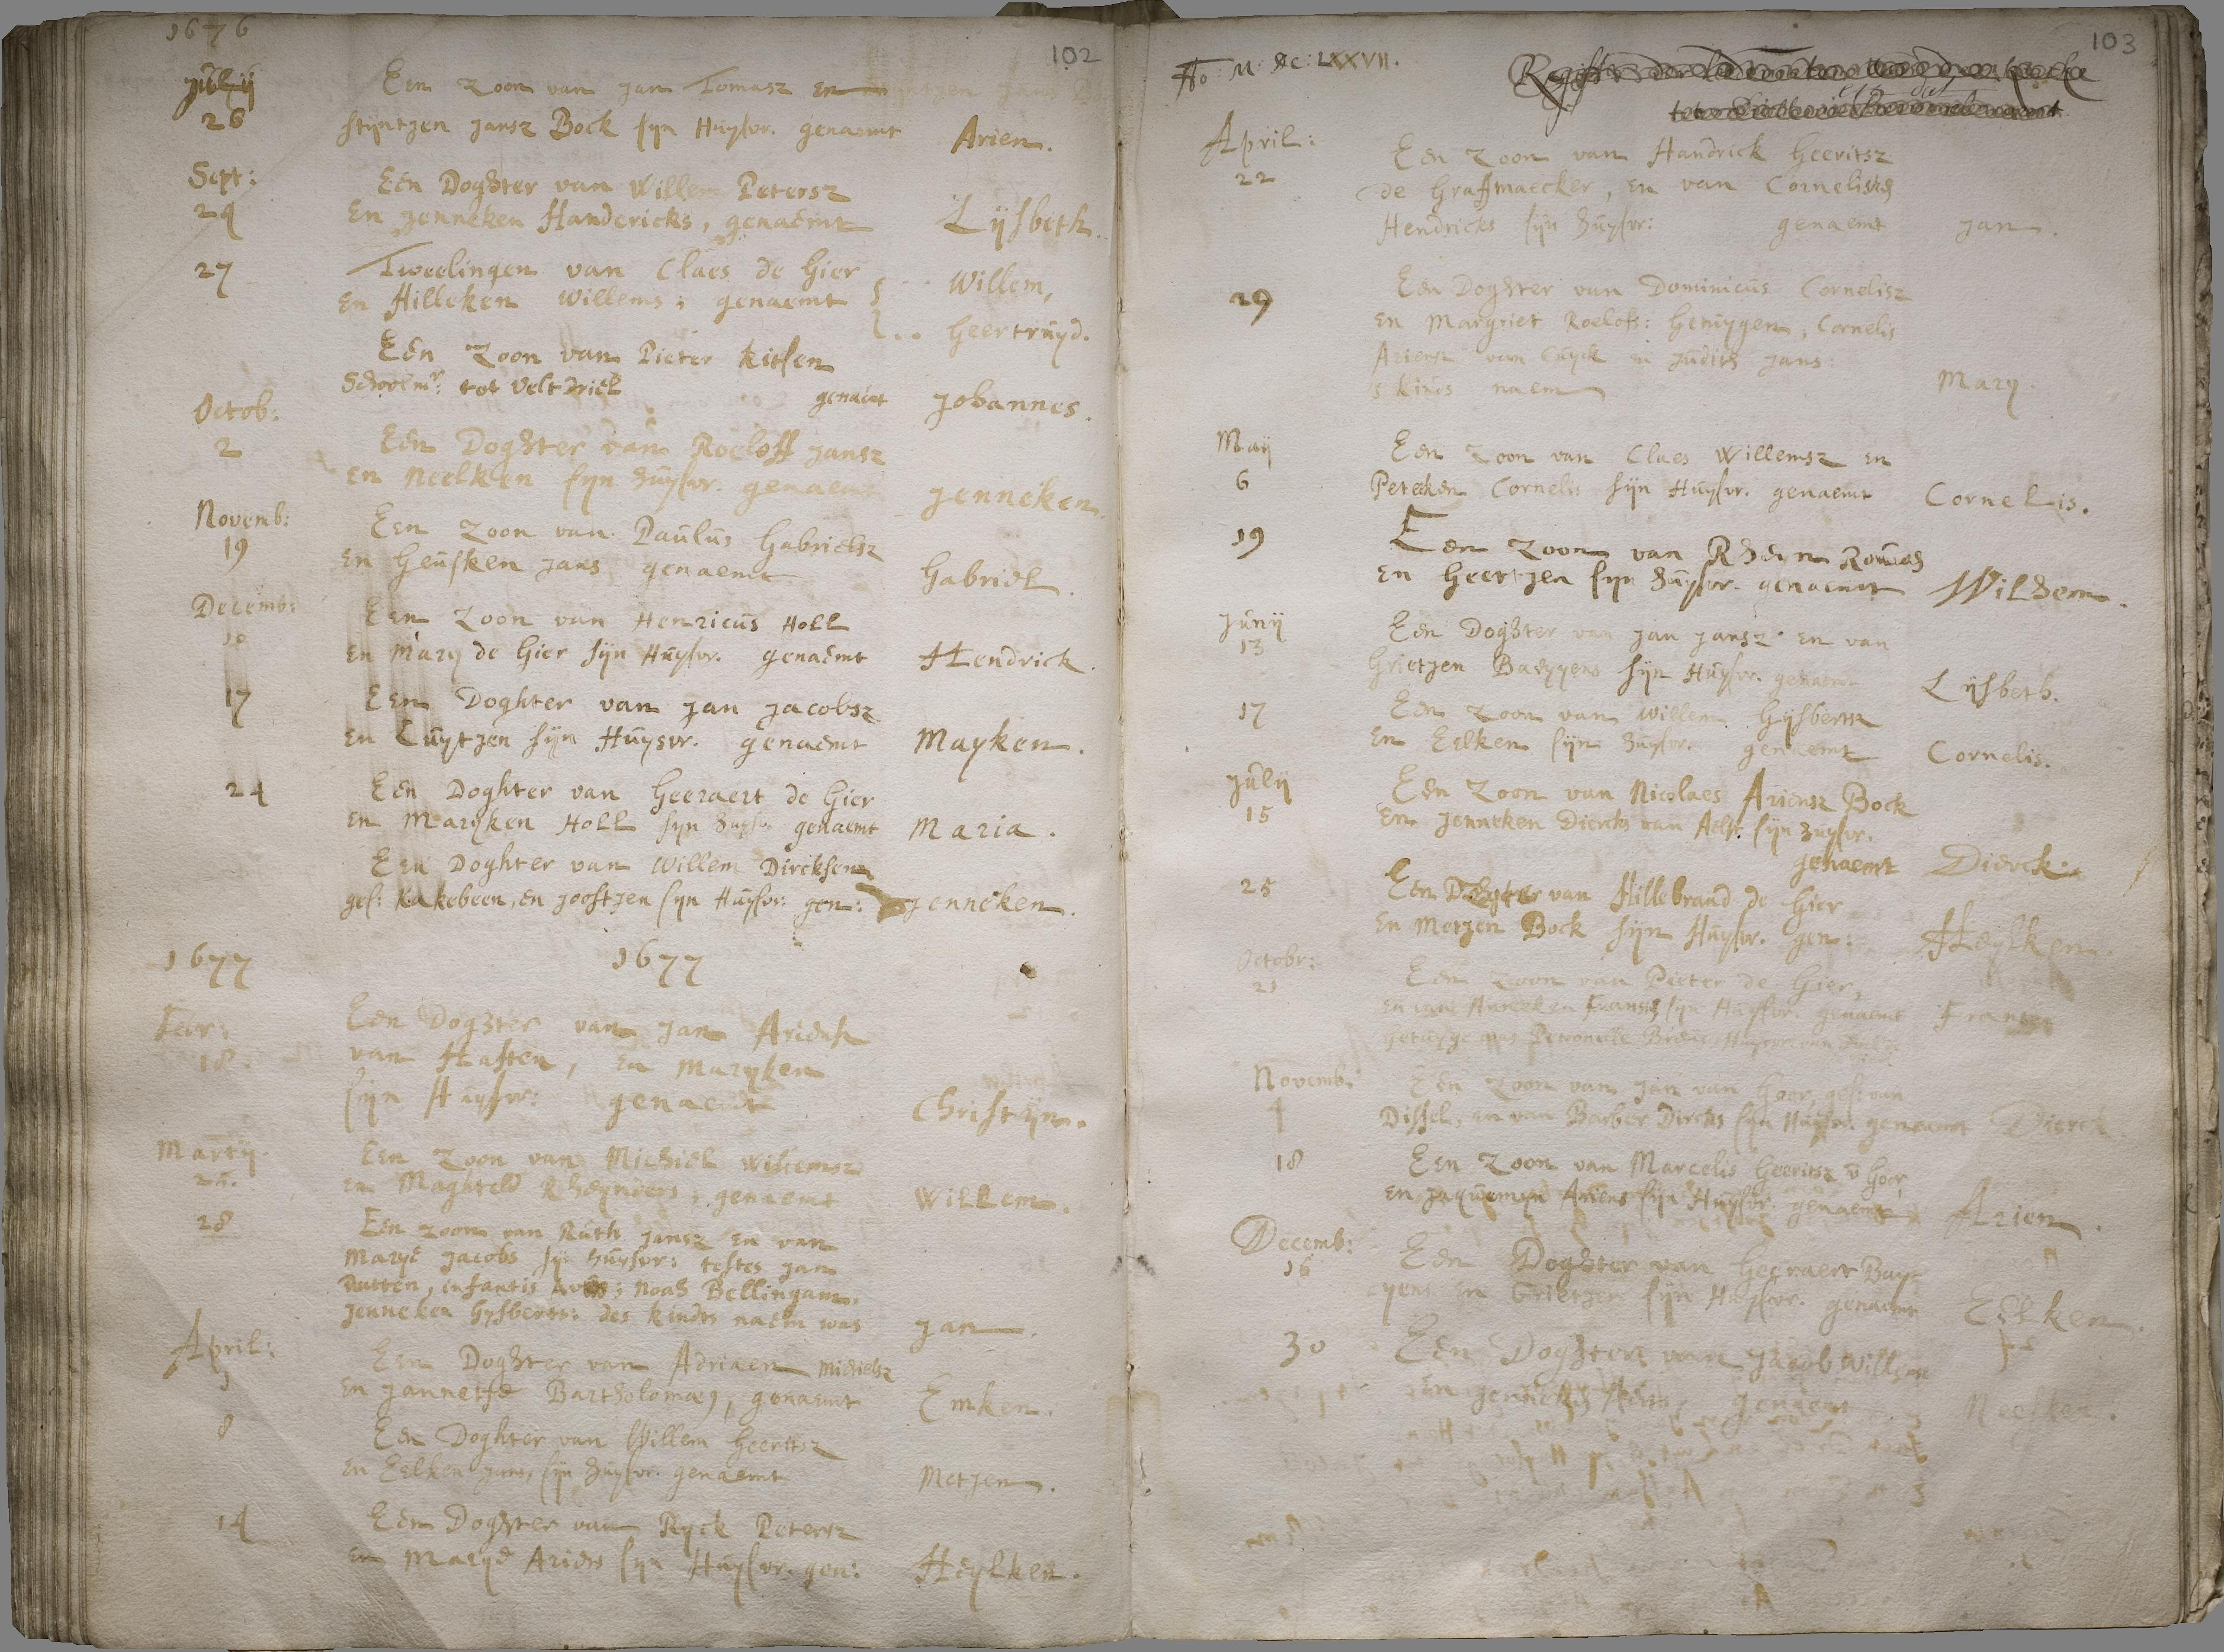 1676
102
Julij
26
Een zoon van Jan Tomasz en
Stijntjen Jansz Bock sijn Huysvr. genaemt Arien.
Sept:
24
Een Doghter van Willem Petersz
En Jenneken Handericks, genaemt Lijsbeth.
27
Tweelingen van Claes de Gier
En Hilleken Willems; genaemt Willem,
Geertruyd.
Een zoon van Pieter Kitsen
Schoolmr: tot Veltdriel genaemt Johannes.
Octob:
2
Een Doghter van Roeloff Jansz
En Neelken sijn huysvr. genaemt Jenneken.
Novemb:
19
Een zoon van Paulus Gabrielsz
En Geusken Jans genaemt Gabriel.
Decemb:
10
Een zoon van Henricus Holl
En Mary de Gier sijn Huysvr. genaemt Hendrick.
17
Een Doghter van Jan Jacobsz
En Luytjen sijn Huysvr. genaemt Mayken.
24
Een Doghter van Geeraert de Gier
En Maryken Holl sijn huysvr genaemt Maria.
Een Doghter van Willem Dircksen
ges: Kakebeen, en Joostjen sijn Huysvr: gen: Jenneken.
1677 1677
Febr:
18.
Een Doghter van Jan Ariens
van Haften, En Maryken
sijn Huysvr: genaemt Christijn.
Martij
21.
Een zoon van Michiel Willemsz
en Maghteld Rheynders, genaemt Willem.
28
Een zoon van Ruth Jansz en van
Marye Jacobs sijn huysvr: testes Jan
Dutten, infantis ; Noah Bellingam.
Jenneken Gysberts: des kindts naem was Jan.
April:
1
Een Doghter van Adriaen Michielsz
En Jannetje Bartholomaej, genaemt Emken.
8
Een Doghter van Willem Geeritsz
En Eelken Jans, sijn huysvr. genaemt Metjen.
14
Een Doghter van Ryck Petersz
en Marye Ariens sijn Huysvr. gen: Heylken.
103
Ao: M. DC: LXXVII.
April:
22
Een zoon van Handrick Geeritsz
de Grafmaecker, en van Cornelisken
Hendricks sijn huysvr: genaemt Jan.
29
Een Doghter van Dominicus Cornelisz
en Margriet Roelofs: Getuygen, Cornelis
Ariensz van Cuyck en Judith Jans:
's kints naem Mary.
Maij
6
Een zoon van Claes Willemsz en
Peteken Cornelis sijn Huysvr. genaemt Cornelis.
19
Een zoon van Rheyn
en Geertjen sijn huysvr. genaemt Wilhem.
Junij
13
Een Doghter van Jan Jansz en van
Grietjen Baeyyens sijn Huysvr. genaemt Lijsbeth.
17
Een zoon van Willem Gijsbertsz
En Eelken sijn huysvr. genaemt Cornelis.
Julij
15
Een zoon van Nicolaes Ariensz Bock
En Jenneken Diercks van Aelst sijn huysvr.
genaemt Dierck.
25
Een Doghter van Hillebrand de Gier
En Metjen Bock sijn Huysvr. gen: Heylken.
Octobr:
21
Een zoon van Pieter de Gier,
en van Anneken Fransen sijn Huysvr. genaemt Frans
Getuyge was Petronella Huysvr van
Novemb:
4
Een zoon van Jan van Goor, ges: van
Dissel, en van Barber Dircks sijn Huysvr. genaemt Dierck
18
Een zoon van Marcelis Geeritsz v Goor
en Jaquemyn Ariens sijn Huysvr. genaemt Arien.
Decemb:
16
Een Doghter van Geeraert Bay-
yens en Grietjen sijn Huysvr. genaemt Eelken.
30
Een Doghter van Jacob Willemsen
en Jenneken genaemt Neesken.